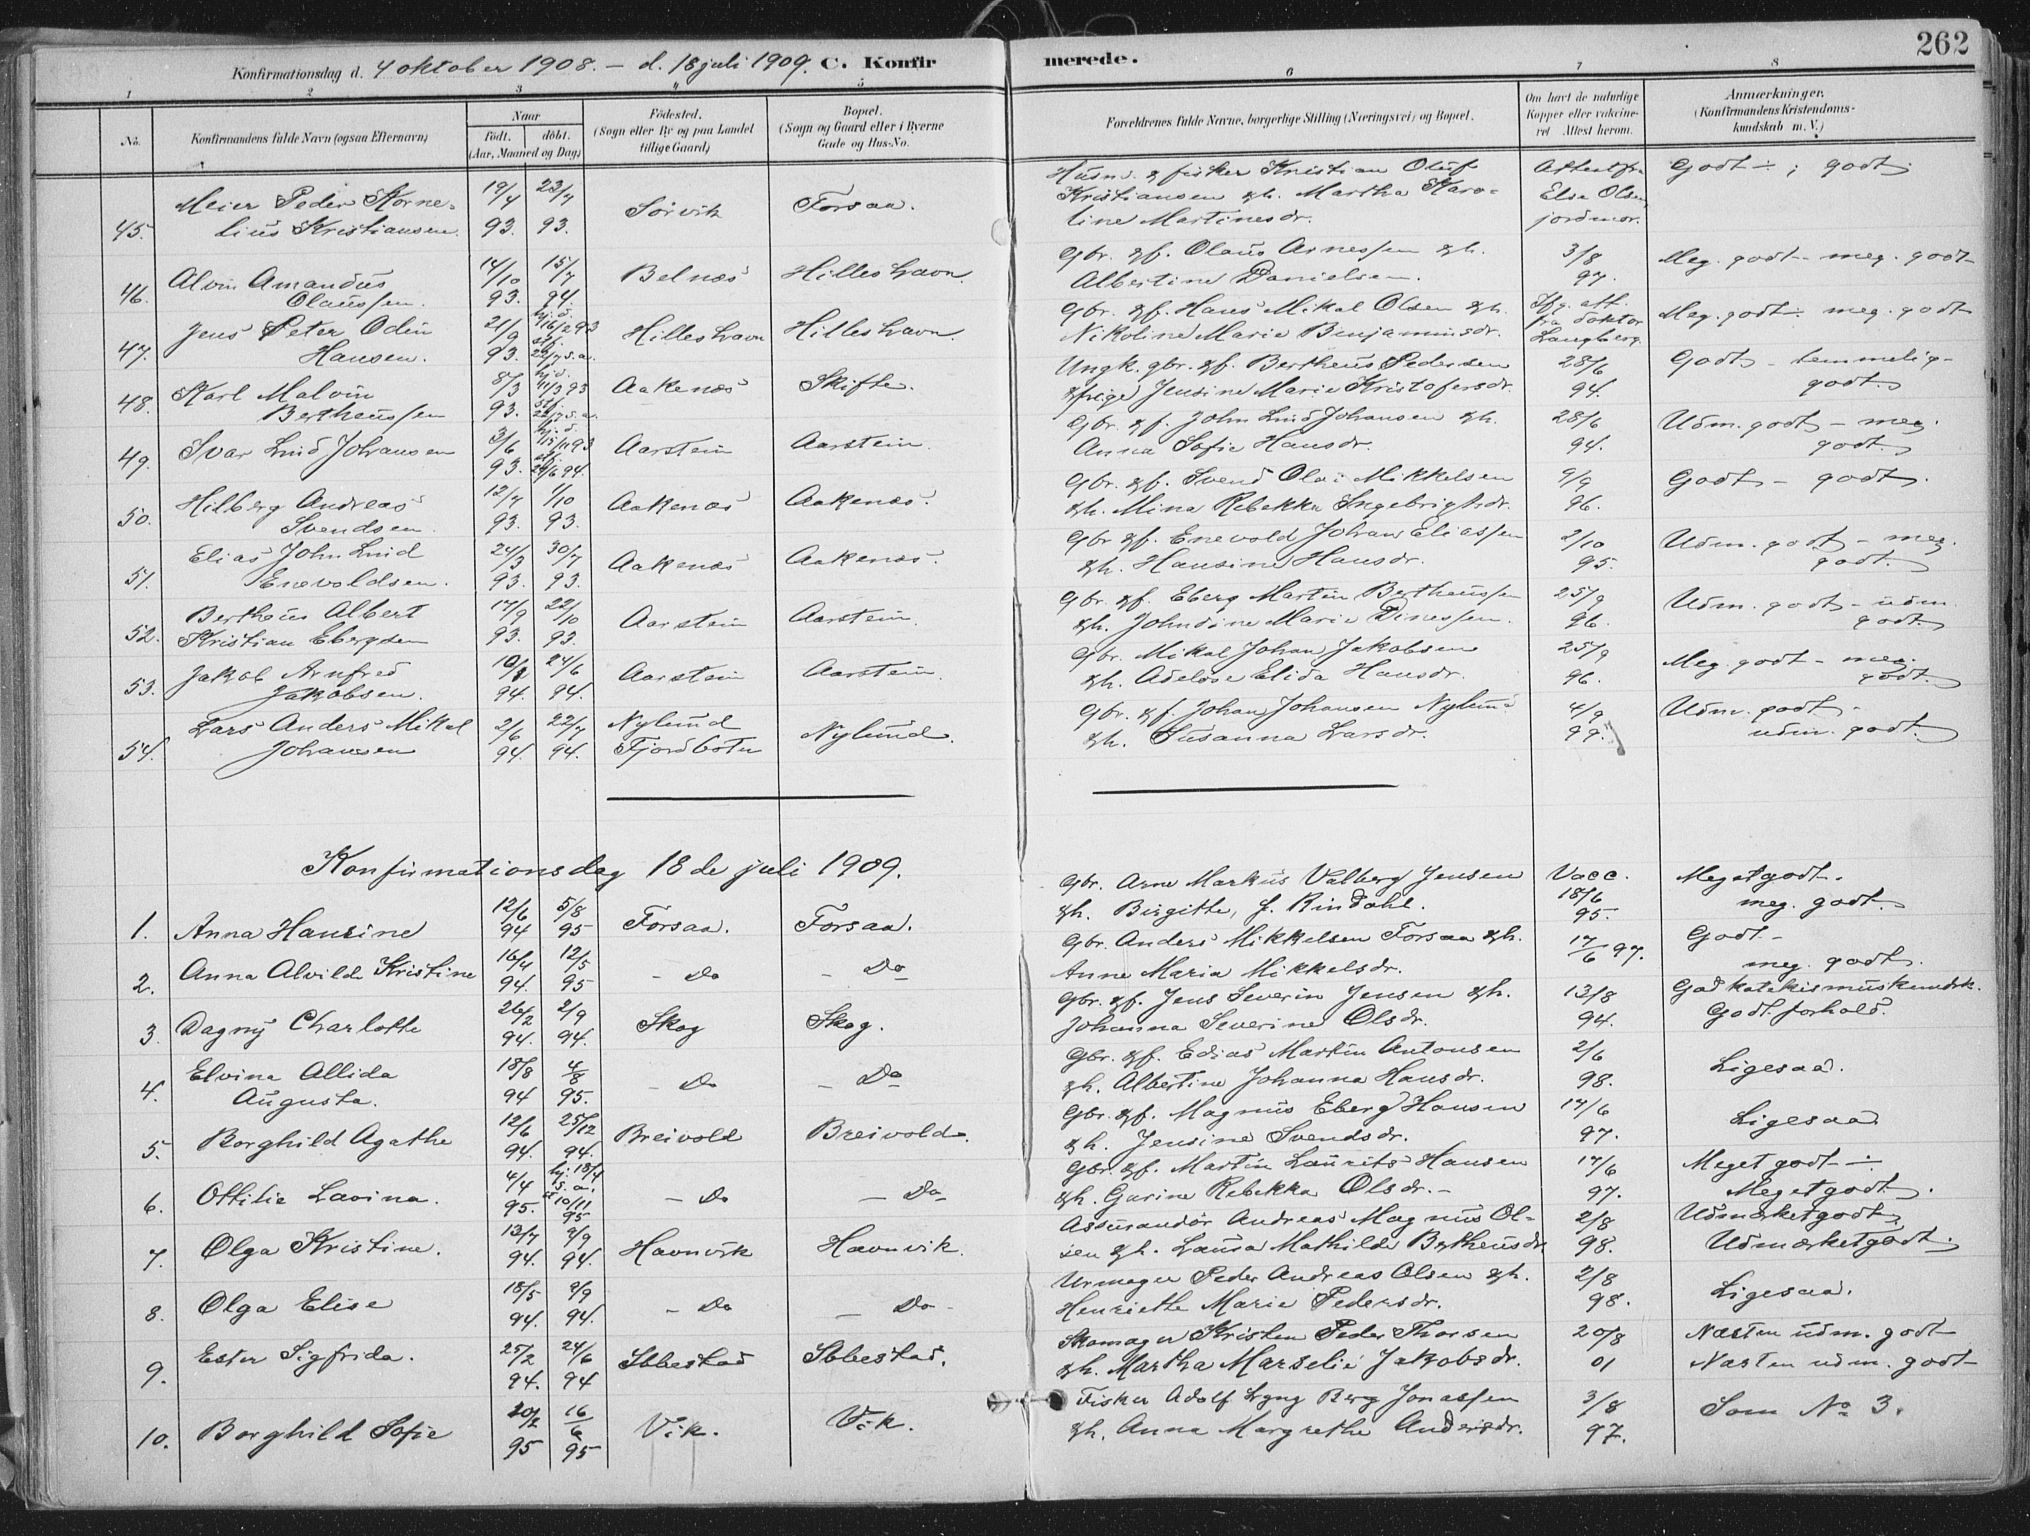 262
Konfirmationsdag d. 4 oktober 1908. – d. 18 juli 1909. C. Konfirmerede.
1 2 3 4 5 6 7 8
No. Konfirmandens fulde Navn (ogsaa Efternavn)
Naar født. døbt. (Aar, Maaned og Dag)
Fødested. (Sogn eller By og paa Landet tillige Gaard)
Bopæl. (Sogn og Gaard eller i Byerne Gade og Hus-No.
Forældrenes fulde Navne, borgerlige Stilling (Næringsvei) og Bopæl.
Om havt de naturlige Kopper eller vakcineret. Attest herom.
Anmærkninger. (Konfirmandens Kristendomskundskab m. V.)
45. Meier Peder Korne-
lius Kristiansen. 19/7 93. 23/7 93. Sørvik Forsaa.
Husm. & fisker Kristian Oluf
Kristiansen & h. Martha Karo-
line Martinesdr.
Attest fra
Else Olsen,
jordmor.
Godt ÷ ; godt.
46. Alvin Amandus
Olaussen. 14/10 93. 15/7 94. Belnæs Hilleshavn.
Gbr. & f. Olaus Arnessen & h.
Albertine Danielsen.
3/8 97. Meg. godt – meg. godt
47. Jens Peter Odin
Hansen. 21/9 93. Hilleshavn Hilleshavn.
Gbr. & f. Hans Mikal Olsen & h.
Nikoline Marie Benjaminsdr.
Ifg. att.
fra doktor
Langberg.
Meg. godt ÷ meg. godt
48. Karl Malvin
Berthenssen 8/3 93. Aakenæs Skifte.
Ungk. gbr. & f. Bertheus Pedersen
& pige Jensine Marie Kristofersdr.
28/6 94.
Godt – temmelig
godt.
49. Ivar Lind Johansen 3/6 93. Aarstein Aarstein.
Gbr. & f. John Lind Johansen & h.
Anna Sofie Hansdr.
28/6 94.
Udm. godt – meg.
godt.
50. Hilberg Andreas
Svendsen. 12/7 93. 1/10 93. Aakenæs Aakenæs.
Gbr. & f. Svend Olai Mikkelsen
& h. Mina Rebekka Ingebrigtsdr.
9/9 96.
Godt – godt.
51. Elias John Lind
Enevoldsen. 24/3 93. 30/7 93. Aakenæs Aakenæs.
Gbr & f. Enevold Johan Eliassen
& h. Hansine Hansdr.
2/10 95.
Udm. godt – meg.
godt.
52. Bertheus Albert
Kristian Ebergsen 17/9 93. 22/10 93. Aarstein Aarstein.
Gbr. & f. Eberg Martin Berthenssen
& h. Johndine Marie Dinessen.
25/9 96.
Udm. godt – udm.
godt.
53. Jakob Arnfred
Jakobsen. 94. 24/6 94. Aarstein Aarstein.
Gbr. Mikal Johan Jakobsen
& h. Adelose Elida Hansdr.
25/9 96.
Meg. godt – meg.
godt.
54. Lars Anders Mikal
Johansen 2/6 94. 22/7 94. Nylund
Fjordbotn Nylund.
Gbr. & f. Johan Johansen Nylund
& h. Susanna Larsdr.
4/9 99.
Udm. godt –
udm. godt.
Konfirmationsdag 18de juli 1909.
1. Anna Hansine 12/6 94 5/8 95 Forsaa. Forsaa.
Gbr. Arne Markus Valberg Jensen
& h. Birgitte, f. Rindahl.
Vacc. 18/6 95.
Meget godt.
meg. godt.
2. Anna Alvilde Kristine 16/4 94. 12/5 95 – Do – Do
Gbr. Anders Mikkelsen Forsaa & h.
Anne Maria Mikkelsdr.
17/6 97.
Godt –
meg. godt.
3. Dagny Charlotte 26/2 94. 2/9 94. Skog Skog.
Gbr. & f. Jens Severin Jensen & h.
Johanna Severine Olsdr.
13/8 94.
God katekismuskundsk.
Godt forhold.
4. Elvina Allida
Augusta. 18/8 94 4/8 95. – Do – Do
Gbr. & f. Edias Martin Antonsen
& h. Albertine Johanna Hansdr.
2/6 98. Ligesaa.
5. Borghild Agathe 12/6 94. 25/12 94. Breivold Breivold.
Gbr. & f. Magnus Eberg Hansen
& h. Jensine Svendsdr.
17/6 97. Ligesaa
6. Ottilie Lavina. 4/4 95. hj. 18/4 s. a. 10/11 95 – Do – Do
Gbr. & f. Martin Laurits Hansen
& h. Gurine Rebekka Olsdr. –
17/6 97.
Meget godt ÷
Meget godt.
7. Olga Kristine. 13/7 94. 9/9 94. Havnvik Havnvik.
Assurandør Andreas Magnus Ol-
sen & h. Laura Mathilde Bertheusdr
2/8 98.
Udmærket godt.
Udmærket godt.
8. Olga Elise 18/5 94. 9/9 94. – Do – Do –
Urmager Peder Andreas Olsen & h.
Henriette Marie Pedersdr.
2/8 98. Ligesaa.
9. Ester Sigfrida. 25/2 94. 24/6 94 Ibbestad Ibbestad.
Skomager Kristen Peder Thorsen
& h. Martha Marselie Jakobsdr.
20/8 01
Næsten udm. godt
Næsten udm. godt
10. Borghild Sofie 20/2 95 16/6 95 Vik. Vik.
Fisker Adolf Lyng Berg Jonassen
& h. Anna Margrethe Andersdr.
3/8 97. Som No 3.